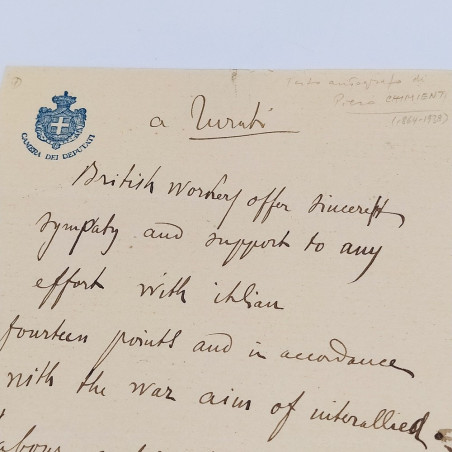 testo autografo di
Pietro CHIMIENTI
(1864-1938)
CAMERA DEI DEPUTATI
a Turati
British Workers offer sincerest
sympaty and support to any
effort with italian
fourteen points and in accordance
with the war aim of interallied
labour